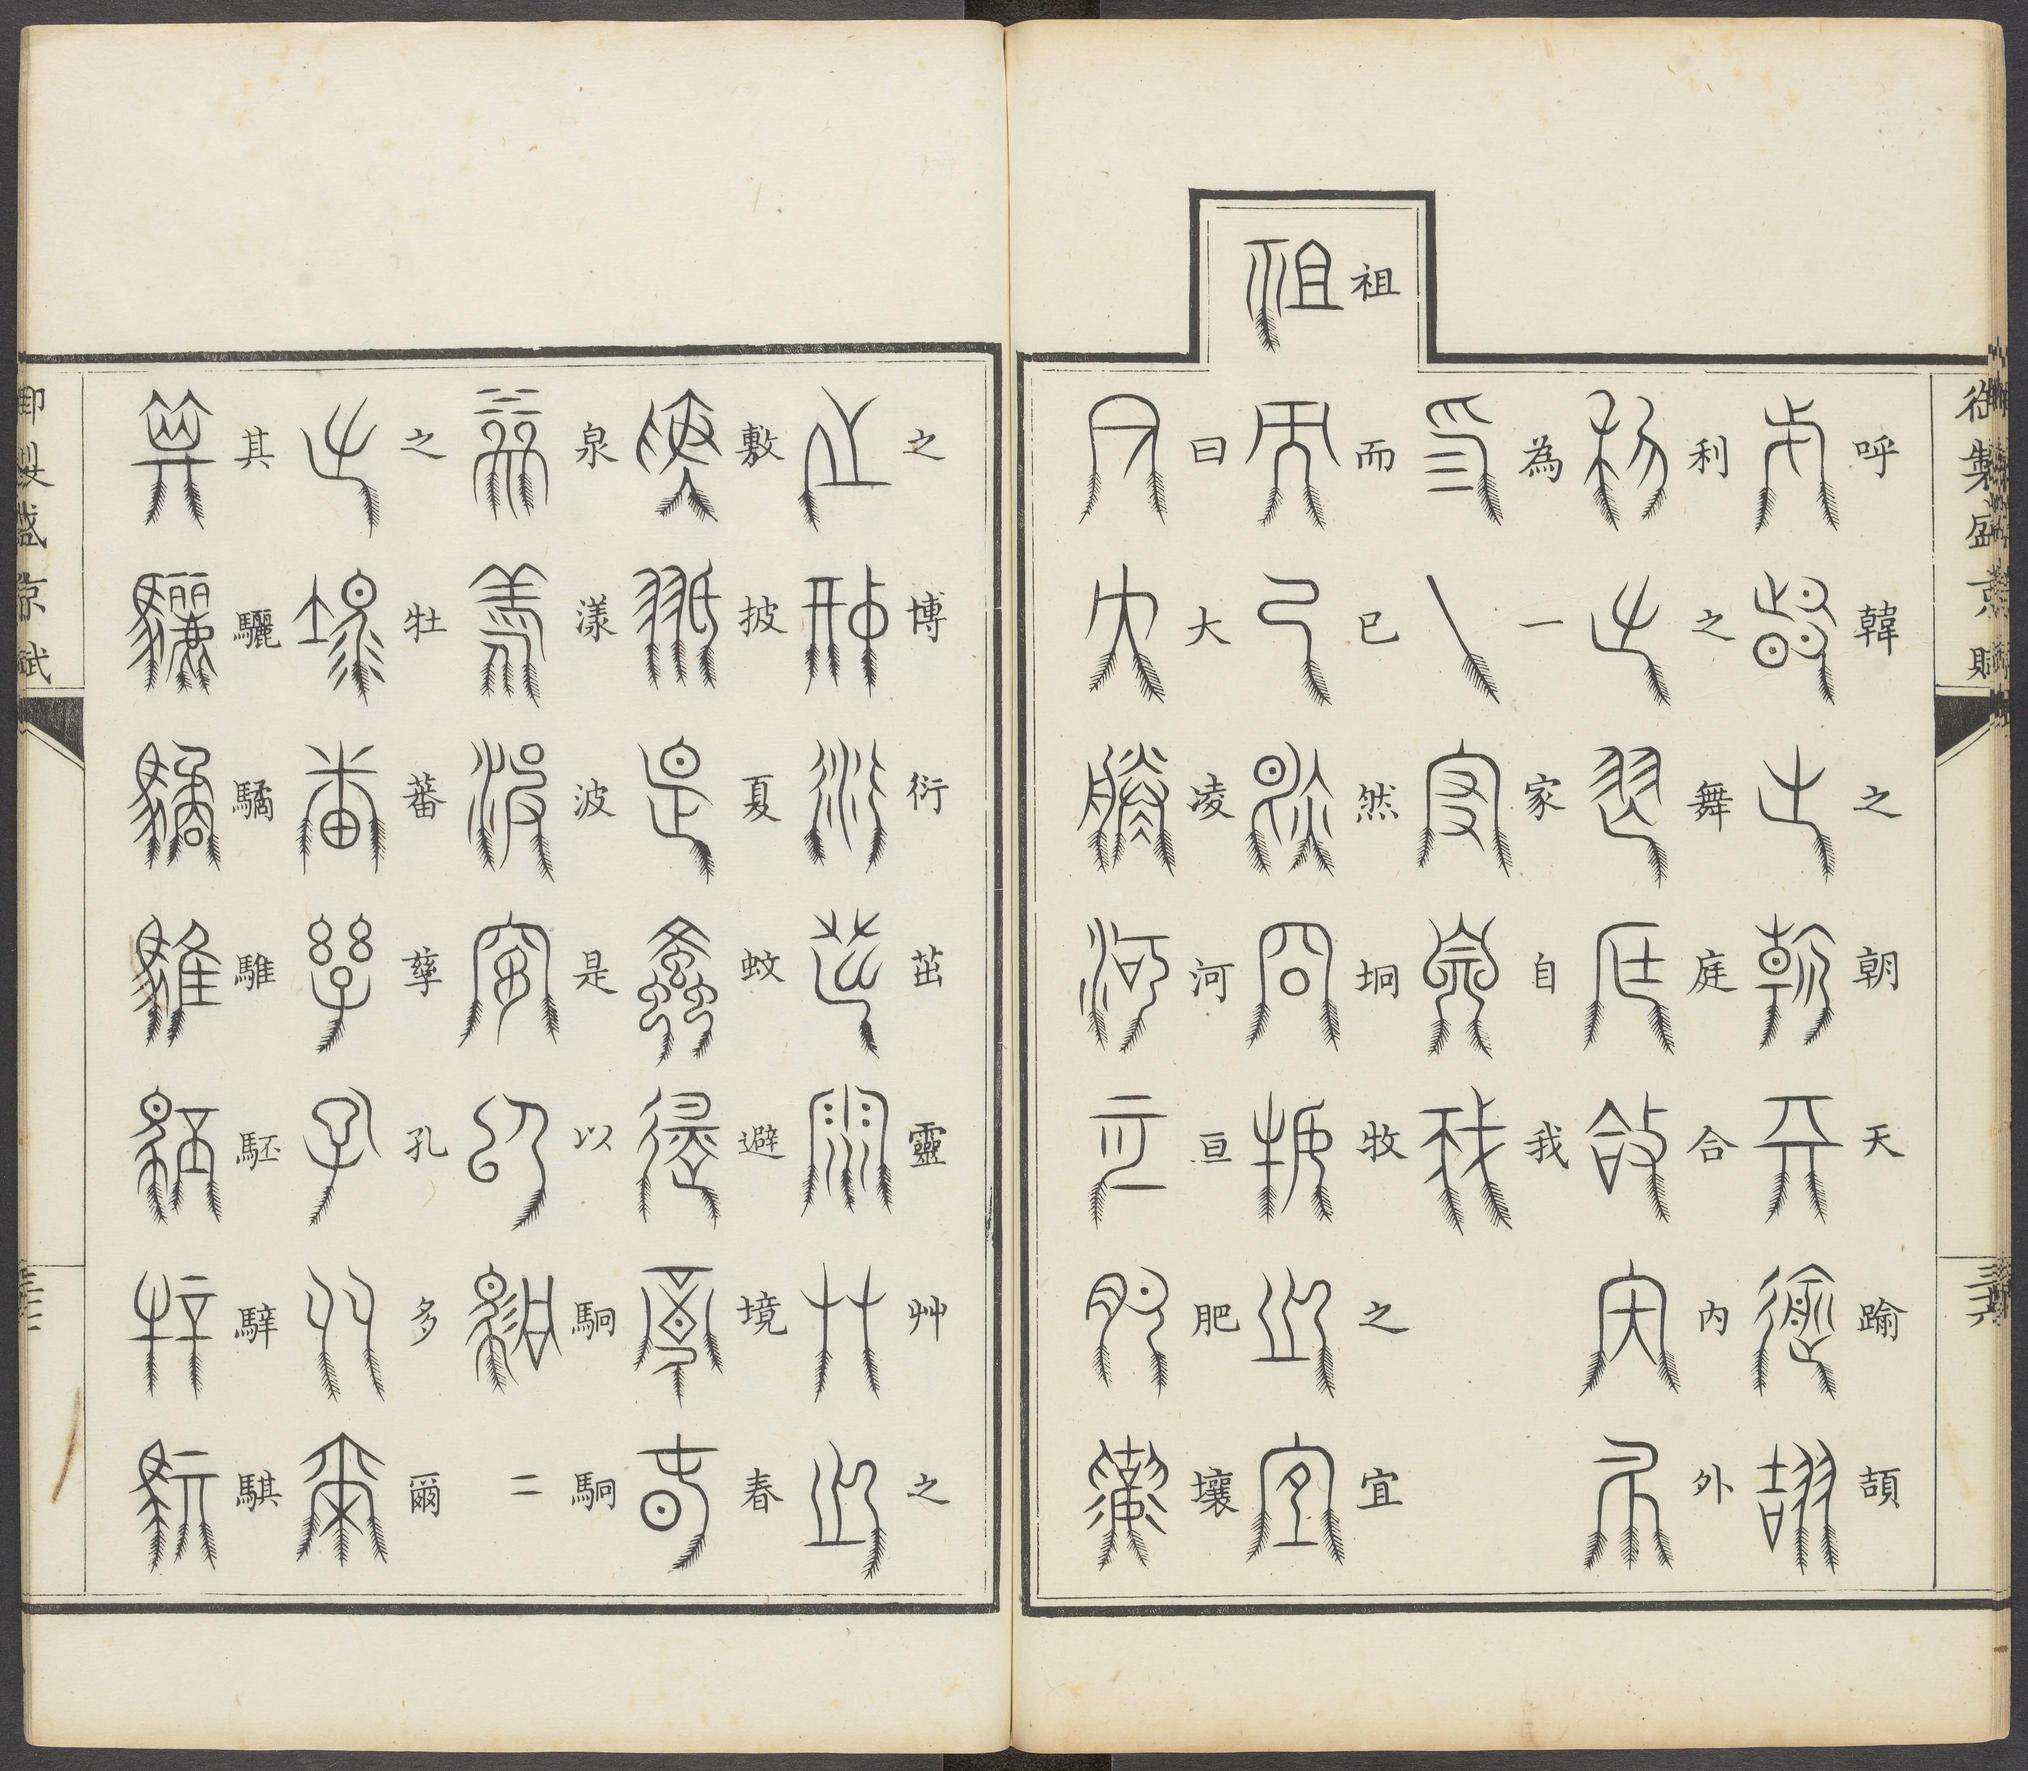 御製盛京賦
呼韓之朝天踰頡
利之舞庭合內外
為一家自我
祖而已然坰牧之宜
曰大凌河亘肥壤
之博衍茁靈艸之
敷披夏蚊避境春
泉漾波是以駉駉
之牡蕃孳孔多爾
其驪驈騅駓騂騏
御製盛京賦